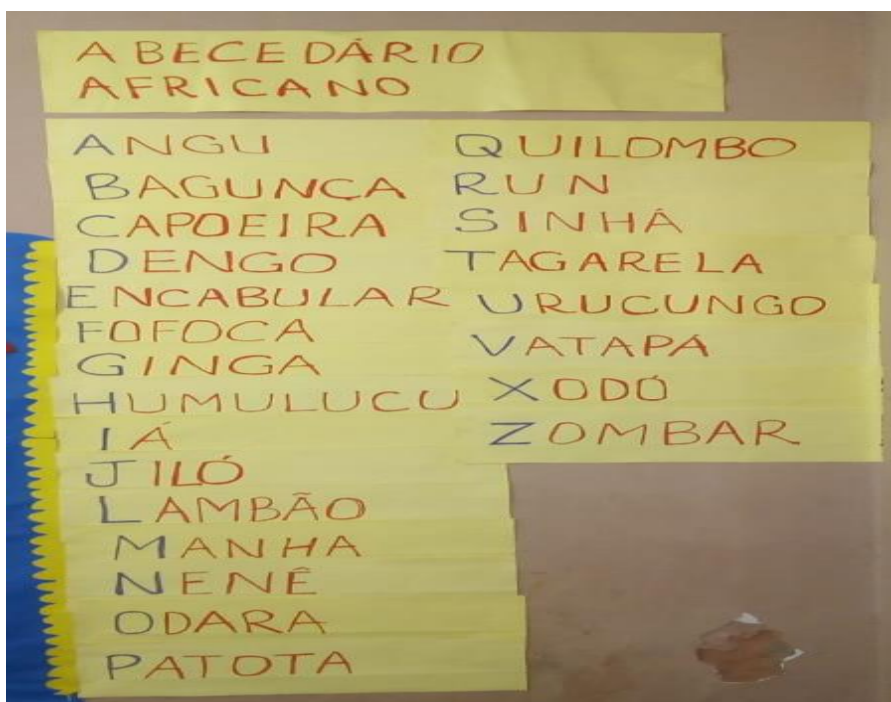 ABECEDÁRIO
AFRICANO
ANGU
BAGUNÇA
CAPOEIRA
DENGO
ENCABULAR
FOFOCA
GINGA
HUMULUCU
IÁ
JILÓ
LAMBÃO
MANHA
NENÊ
ODARA
PATOTA
QUILOMBO
RUN
SINHÁ
TAGARELA
URUCUNGO
VATAPÁ
XODÓ
ZOMBAR